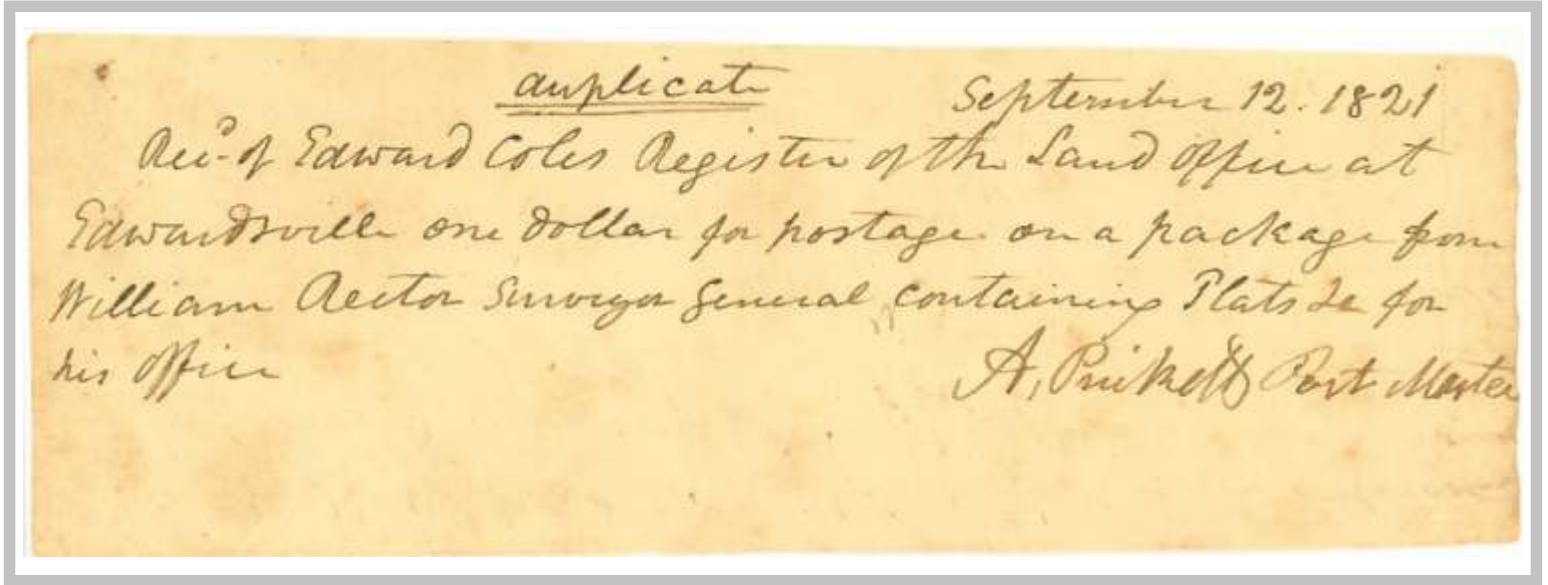 duplicate September 12. 1821
Rec.d of Edward Coles Register of the Land Office at
Edwardsville one dollar for postage on a package from
William Rector Surveyor General containing Plats &c for
his office
A, Prickett Post Master